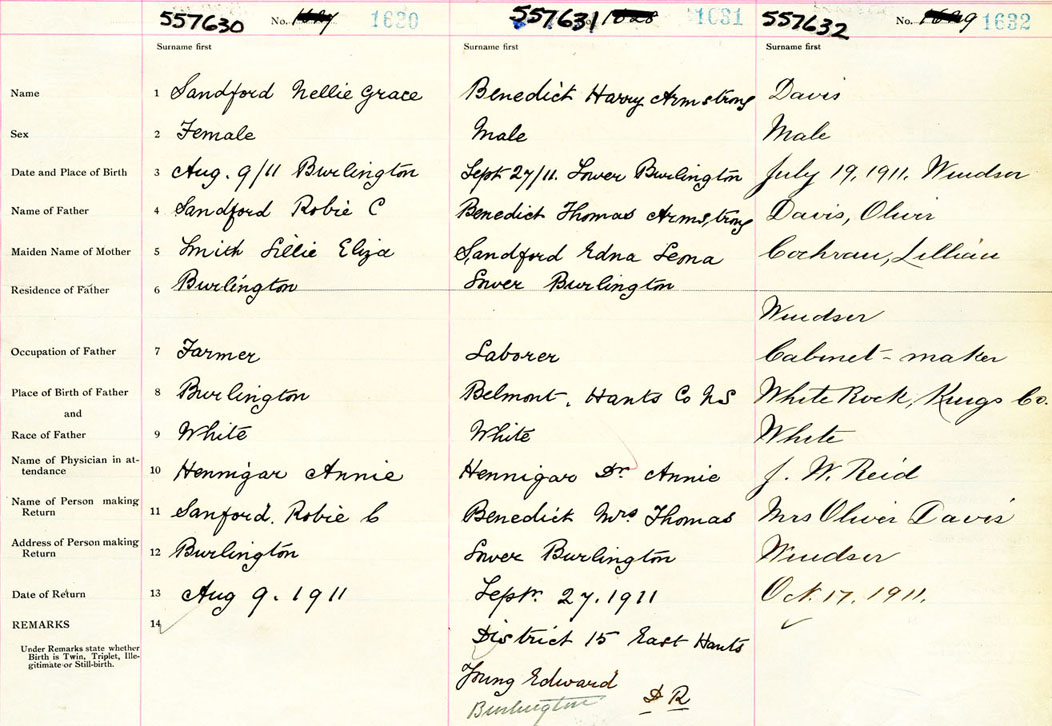 557630 No. 1620 557631 1631 557632 No. 1632
Surname first Surname first Surname first
Name 1 Sandford Nellie Grace Benedict Harry Armstrong Davis
Sex 2 Female Male Male
Date and Place of Birth 3 Aug. 9/11 Burlington Sept 27/11. Lower Burlington July 19, 1911. Windsor
Name of Father 4 Sandford Robie C Benedict Thomas Armstrong Davis, Oliver
Maiden Name of Mother 5 Smith Lillie Eliza Sandford Edna Leona Cochran, Lillian
Residence of Father 6 Burlington Lower Burlington
Windsor
Occupation of Father 7 Farmer Laborer Cabinet-maker
Place of Birth of Father 8 Burlington Belmont, Hants Co NS White Rock, Kings Co.
and
Race of Father 9 White White White
Name of Physician in at-
tendance 10 Hennigar Annie Hennigar Dr. Annie J. W. Reid
Name of Person making
Return 11 Sanford, Robie C Benedict Mrs Thomas Mrs Oliver Davis
Address of Person making
Return 12 Burlington Lower Burlington Windsor
Date of Return 13 Aug 9. 1911 Sept. 27. 1911 Oct. 17. 1911.
REMARKS 14
District 15 East Hants
Under Remarks state whether
Birth is Twin, Triplet, Ille-
gitimate or Still-birth.
Young Edward
Burlington D R